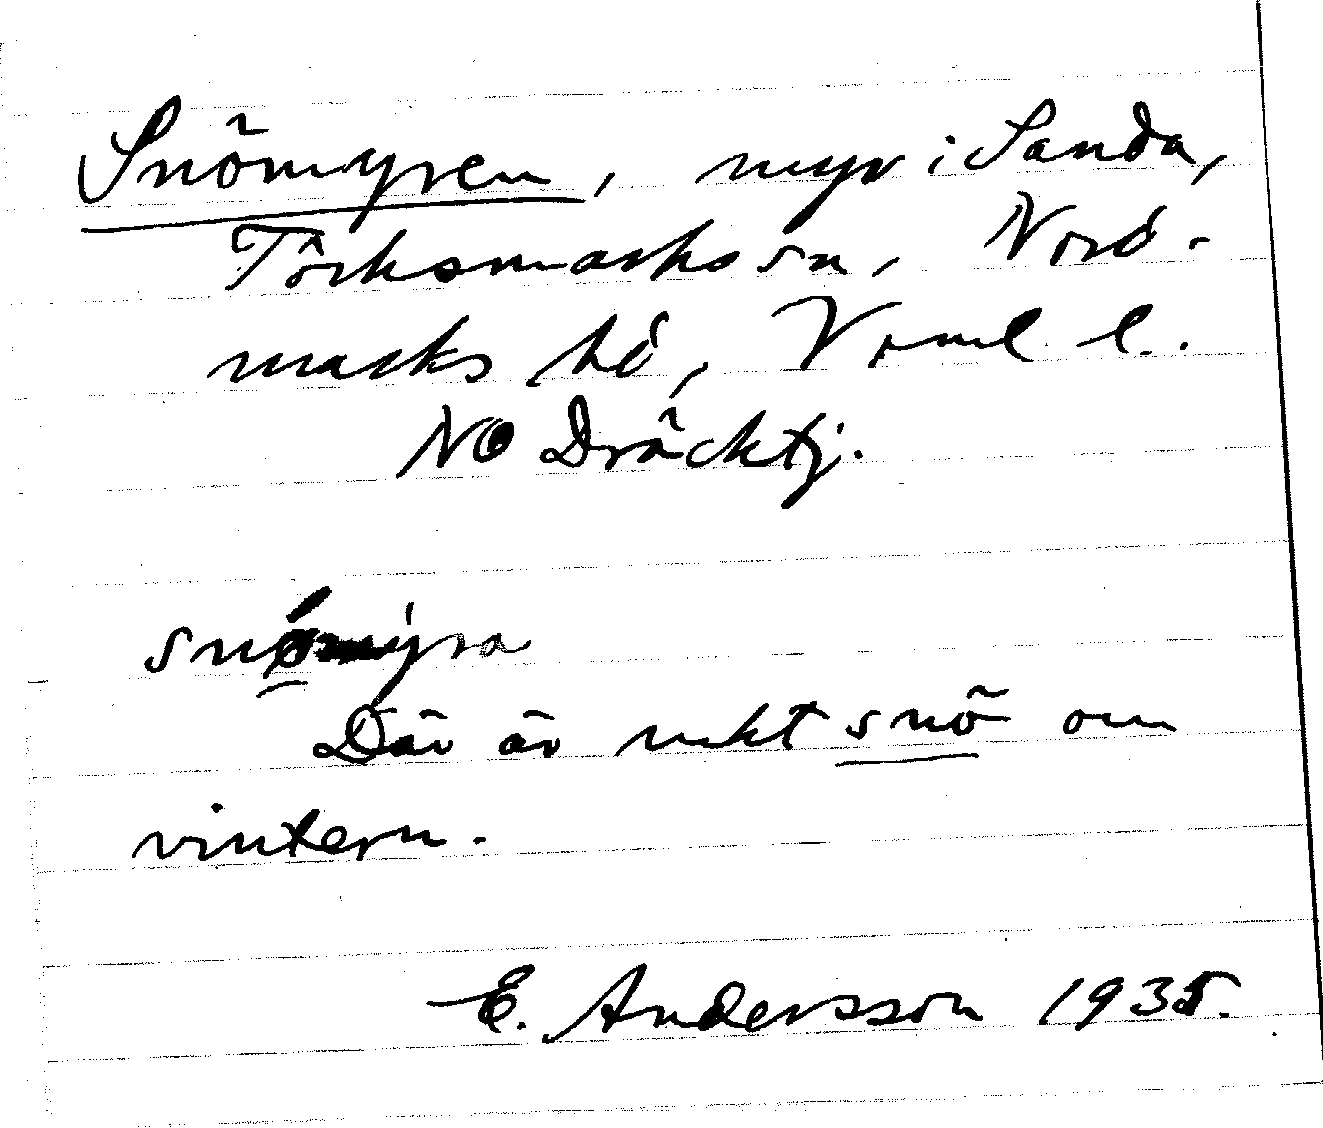 Snömyren, myr i Sanda,
Töcksmarks sn, Nord-
marks hd, Värml. l.
NO Dräcktj.
snömýra
Där är mkt snö om
vintern.
E. Andersson 1935.